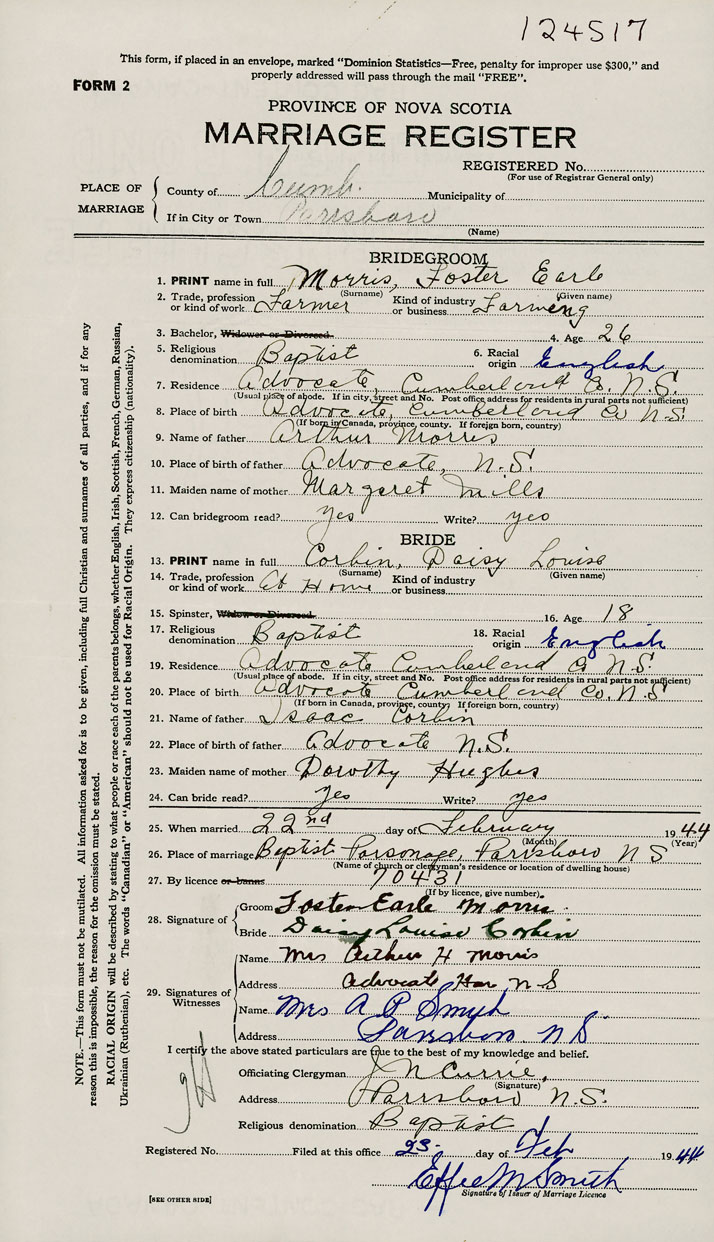 124517
This form, if placed in an envelope, marked "Dominion Statistics—Free, penalty for improper use $300," and
properly addressed will pass through the mail "FREE".
FORM 2
PROVINCE OF NOVA SCOTIA
MARRIAGE REGISTER
REGISTERED No.
(For use of Registrar General only)
PLACE OF MARRIAGE
County of Cumb. Municipality of
If in City or Town Parrsboro
(Name)
BRIDEGROOM
1. PRINT name in full Morris, Foster Earle
(Surname) (Given name)
2. Trade, profession or kind of work Farmer Kind of industry or business Farming
3. Bachelor, Widower or Divorced. 4. Age 26
5. Religious denomination Baptist 6. Racial origin English
7. Residence Advocate, Cumberland Co. N.S.
(Usual place of abode. If in city, street and No. Post office address for residents in rural parts not sufficient)
8. Place of birth Advocate, Cumberland Co N.S.
(If born in Canada, province, county. If foreign born, country)
9. Name of father Arthur Morris
10. Place of birth of father Advocate, N.S.
11. Maiden name of mother Margaret Mills
12. Can bridegroom read? yes Write? yes
BRIDE
13. PRINT name in full Corbin, Daisy Louise
(Surname) (Given name)
14. Trade, profession or kind of work At Home Kind of industry or business
15. Spinster, Widow or Divorced. 16. Age 18
17. Religious denomination Baptist 18. Racial origin English
19. Residence Advocate Cumberland Co N.S.
(Usual place of abode. If in city, street and No. Post office address for residents in rural parts not sufficient)
20. Place of birth Advocate Cumberland Co. N.S
(If born in Canada, province, county. If foreign born, country)
21. Name of father Isaac Corbin
22. Place of birth of father Advocate N.S.
23. Maiden name of mother Dorothy Hughes
24. Can bride read? yes Write? yes
25. When married 22nd day of February 1944
(Month) (Year)
26. Place of marriage Baptist Parsonage, Parrsboro N S
(Name of church or clergyman's residence or location of dwelling house)
27. By licence or banns 10431
(If by licence, give number)
28. Signature of
Groom Foster Earle Morris
Bride Daisy Louise Corbin
29. Signatures of Witnesses
Name Mrs Arthur H Morris
Address Advocate Har N S
Name Mrs A P Smyth
Address Parrsboro N S
I certify the above stated particulars are true to the best of my knowledge and belief.
Officiating Clergyman J N Currie,
(Signature)
Address Parrsboro N.S.
Religious denomination Baptist
Registered No. Filed at this office 23. day of Feb 1944
Effie M Smith
Signature of Issuer of Marriage Licence
[SEE OTHER SIDE]
NOTE.—This form must not be mutilated. All information asked for is to be given, including full Christian and surnames of all parties, and if for any
reason this is impossible, the reason for the omission must be stated.
RACIAL ORIGIN will be described by stating to what people or race each of the parents belongs, whether English, Irish, Scottish, French, German, Russian,
Ukrainian (Ruthenian), etc. The words "Canadian" or "American" should not be used for Racial Origin. They express citizenship (nationality).